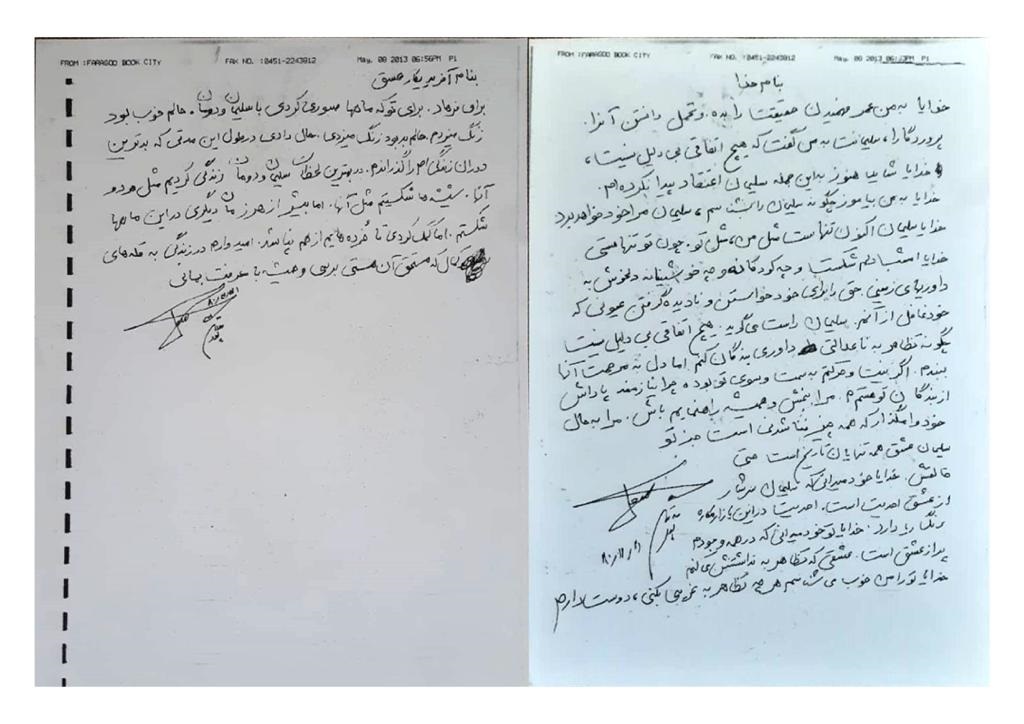 FROM :FARAGOO BOOK CITY FAX NO. :0451-2243812 May. 08 2013 06:56PM P1
بنام آفریدگار عشق
برای فرهاد. برای تو که ماهها صبوری کردی با سلیمان و دومان. حالم خوب بود
زنگ میزدم. حالم بد بود زنگ میزدی. حال دادی در طول این مدتی که بدترین
دوران زندگی ام را گذراندم. در بهترین لحظات سلیمان و دومان زندگی کردیم مثل هر دو
آنها. شیشه ها شکستیم مثل آنها. اما بیش از هر زمان دیگری در این ماهها
شکستم. اما کمک کردی تا خُرده هایم از هم نپاشد. امیدوارم در زندگی به قله های
کمال که مستحق آن هستی برسی و همیشه با معرفت بمانی
FROM :FARAGOO BOOK CITY FAX NO. :0451-2243812 May. 08 2013 06:33PM P1
بنام خدا
خدایا به من عمر فهمیدن حقیقت را بده. و تحمل دانستن آنرا.
پروردگارا، سلیمانت به من گفت که هیچ اتفاقی بی دلیل نیست،
خدایا شاید هنوز به این جمله سلیمان اعتقاد پیدا نکرده ام.
خدایا به من بیاموز چگونه سلیمان را بشناسم، سلیمان مرا خود خواهد برد
خدایا سلیمان اکنون تنهاست مثل من، مثل تو. چون تو تنهاستی
خدایا امشب دلم شکست و چه کودکانه و چه خوشبینانه دلخوش به
داوریهای زمینی. حق را برای خود خواستن و نادیده گرفتن عیوبی که
خود عامل از آنم. سلیمان راست می گوید. هیچ اتفاقی بی دلیل نیست
چگونه تظاهر به ناعدالتی داوری بندگان کنم اما دل به مرحمت آنها
ببندم. اگر نیت و حرکتم به سمت و سوی تو بوده چرا نیازمند پاداش
از بندگان تو هستم. مرا ببخش و همیشه راهنمایم باش. مرا به حال
خود وامگذار که همه چیز فنا شدنی است جز تو
سلیمان عشق همه تنهایان تاریخ است حتی
خالقش. خدایا خود میدانی که سلیمان سرشار
از عشق احدیت است. احدیت در این بازار مکاره
رنگ ریا دارد. خدایا تو خود میدانی که در همه وجودم
پر از عشق است. عشقی که تظاهر به نداشتنش می کنم
خدایا تو را من خوب می شناسم هر چه تظاهر به غریبی بکنی، دوستت دارم
۸۰/۱۱/۲۱